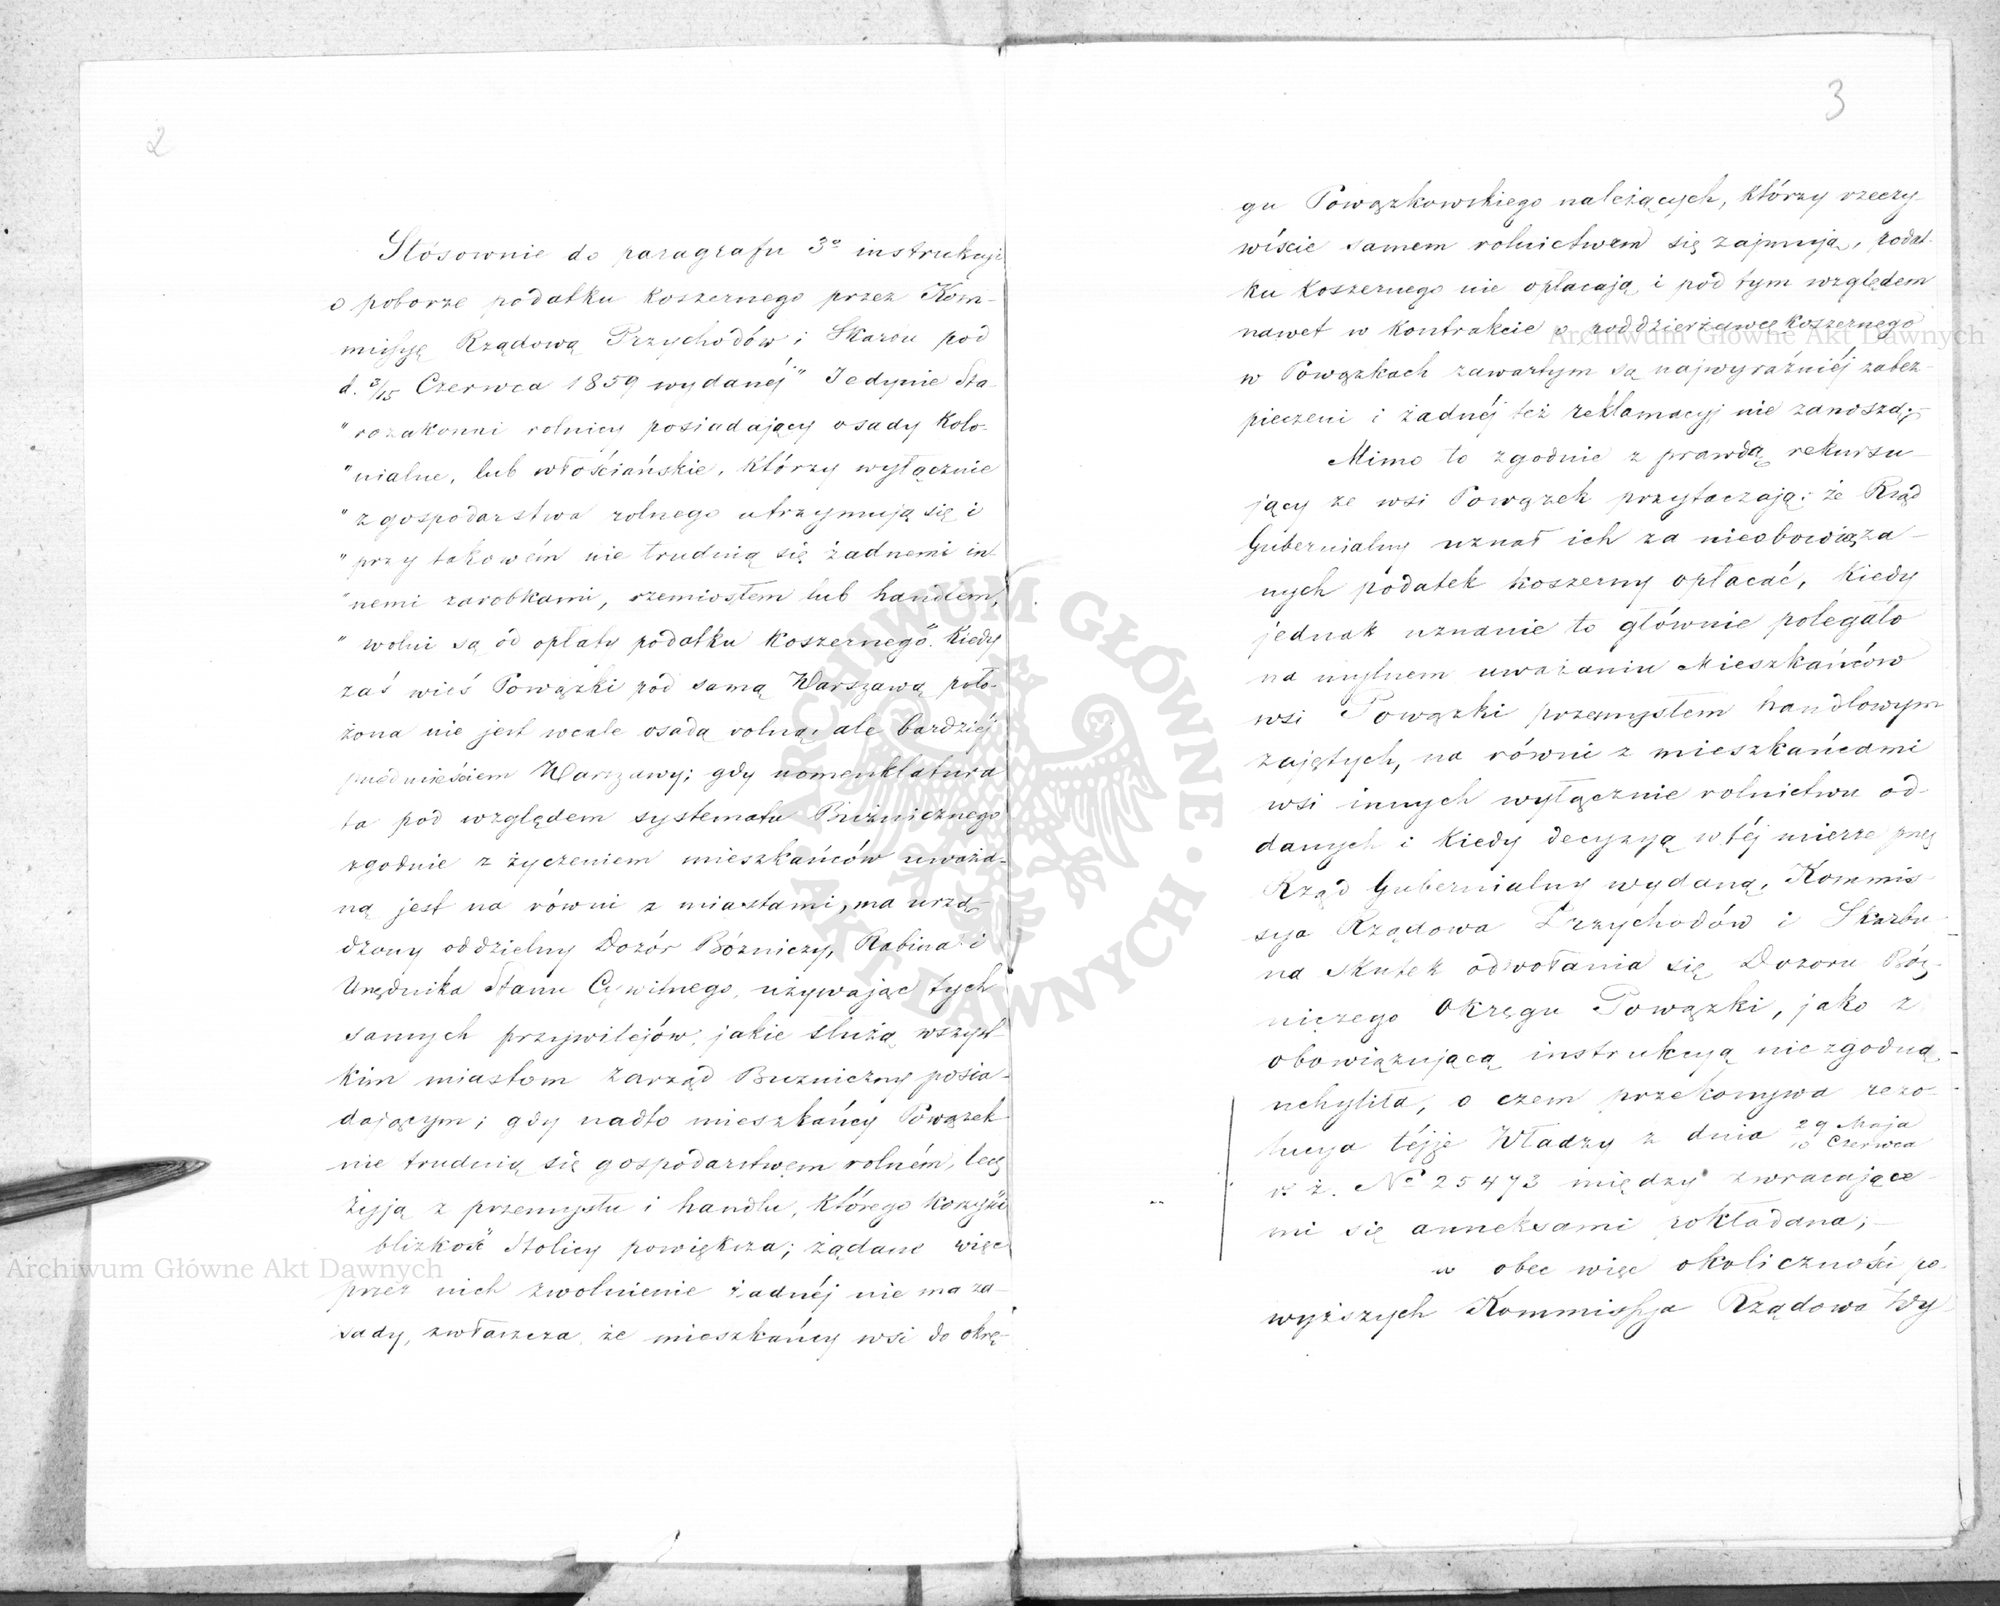 2
Stósownie do paragrafu 3º instrukcyi
o poborze podatku koszernego przez Kom-
missyę Rządową Przychodów i Skarbu pod
d. 3/15 Czerwca 1859 wydanéj „Jedynie sta-
"rozakonni rolnicy posiadający osady kolo-
"nialne, lub włościańskie, którzy wyłącznie
"z gospodarstwa rolnego utrzymują się i
"przy takowém nie trudnią się żadnemi in-
"nemi zarobkami, rzemiosłem lub handlem,
"wolni są od opłaty podatku koszernego". Kiedy
zaś wieś Powązki pod samą Warszawą poło-
żona nie jest wcale osadą rolną, ale bardziéj
przedmieściem Warszawy; gdy nomenklatura
ta pod względem systematu Bużnicznego
zgodnie z życzeniem mieszkańców uważa-
ną jest na równi z miastami, ma urzą-
dzony oddzielny Dozór Bóżniczy, Rabina i
Urzędnika Stanu Cywilnego, używając tych
samych przywilejów, jakie służą wszyst-
kim miastom zarząd Buzniczny posia-
dającym; gdy nadto mieszkańcy Powązek
nie trudnią się gospodarstwem rolném, lecz
żyją z przemysłu i handlu, którego korzyści
blizkość Stolicy powiększa; żądane więc
przez nich zwolnienie żadnéj nie ma za-
sady, zwłaszcza, że mieszkańcy wsi do okrę-
3
gu Powązkowskiego należących, którzy rzeczy-
wiście samem rolnictwem się zajmują, podat-
ku koszernego nie opłacają i pod tym względem
nawet w kontrakcie o poddzierżawę koszernego
w Powązkach zawartym są najwyraźniéj zabez-
pieczeni i żadnéj też reklamacyi nie zanoszą;-
Mimo to zgodnie z prawdą rekursu-
jący ze wsi Powązek przytaczają: że Rząd
Gubernialny uznał ich za nieobowiąza-
nych podatek koszerny opłacać, kiedy
jednak uznanie to głównie polegało
na mylnem uważaniu Mieszkańców
wsi Powązki przemysłem handlowym
zajętych, na równi z mieszkańcami
wsi innych wyłącznie rolnictwu od-
danych i kiedy decyzyą w téj mierze przez
Rząd Gubernialny wydaną, Kommis-
syja Rządowa Przychodów i Skarbu
na skutek odwołania się Dozoru Bóż-
niczego Okręgu Powązki, jako z
obowiązującą instrukcyą niezgodną,-
uchyliła, o czem przekonywa rezo-
lucya téjże Władzy z dnia 29 Maja
10 Czerwca
r. ż. Nº 25473 między zwracające-
mi się anneksami pokładana;-
w obec więc okoliczności po-
wyższych Kommissyja Rządowa Wy-
Archiwum Główne Akt Dawnych
Archiwum Główne Akt Dawnych
ARCHIWUM GŁÓWNE AKT DAWNYCH